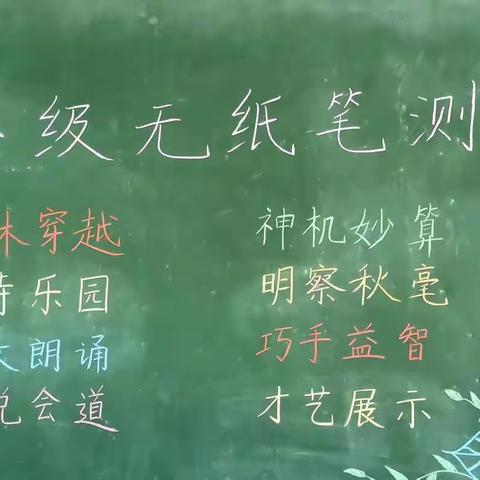 级无纸笔测
穿越
乐园
朗诵
会道
神机妙算
明察秋毫
巧手益智
才艺展示